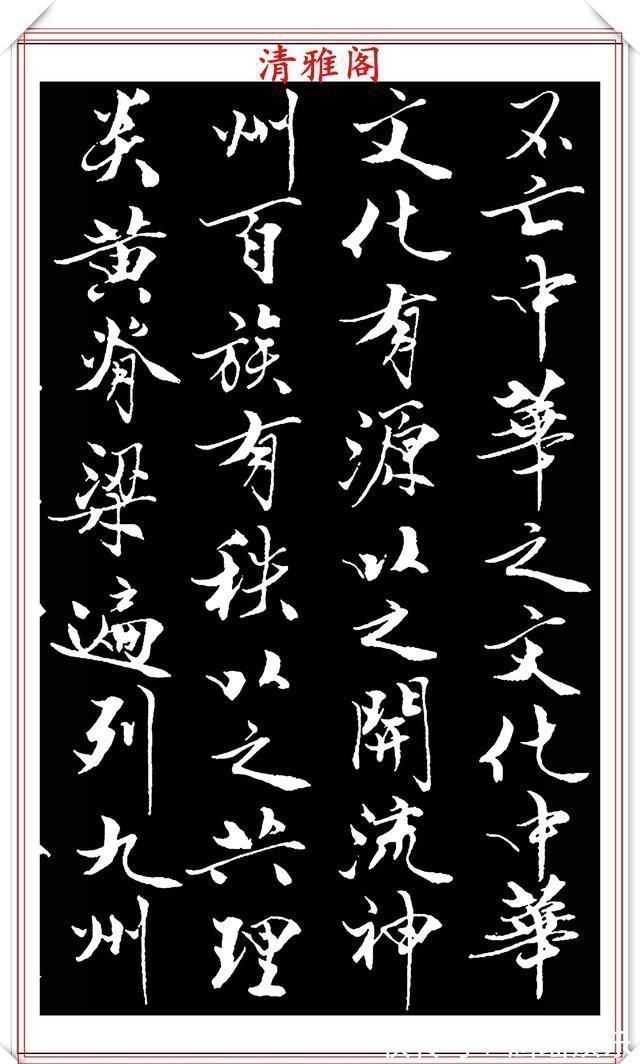 清雅阁
不亡中華之文化中華
文化有源以之開流神
州百族有秩以之共理
炎黄脊梁遍列九州